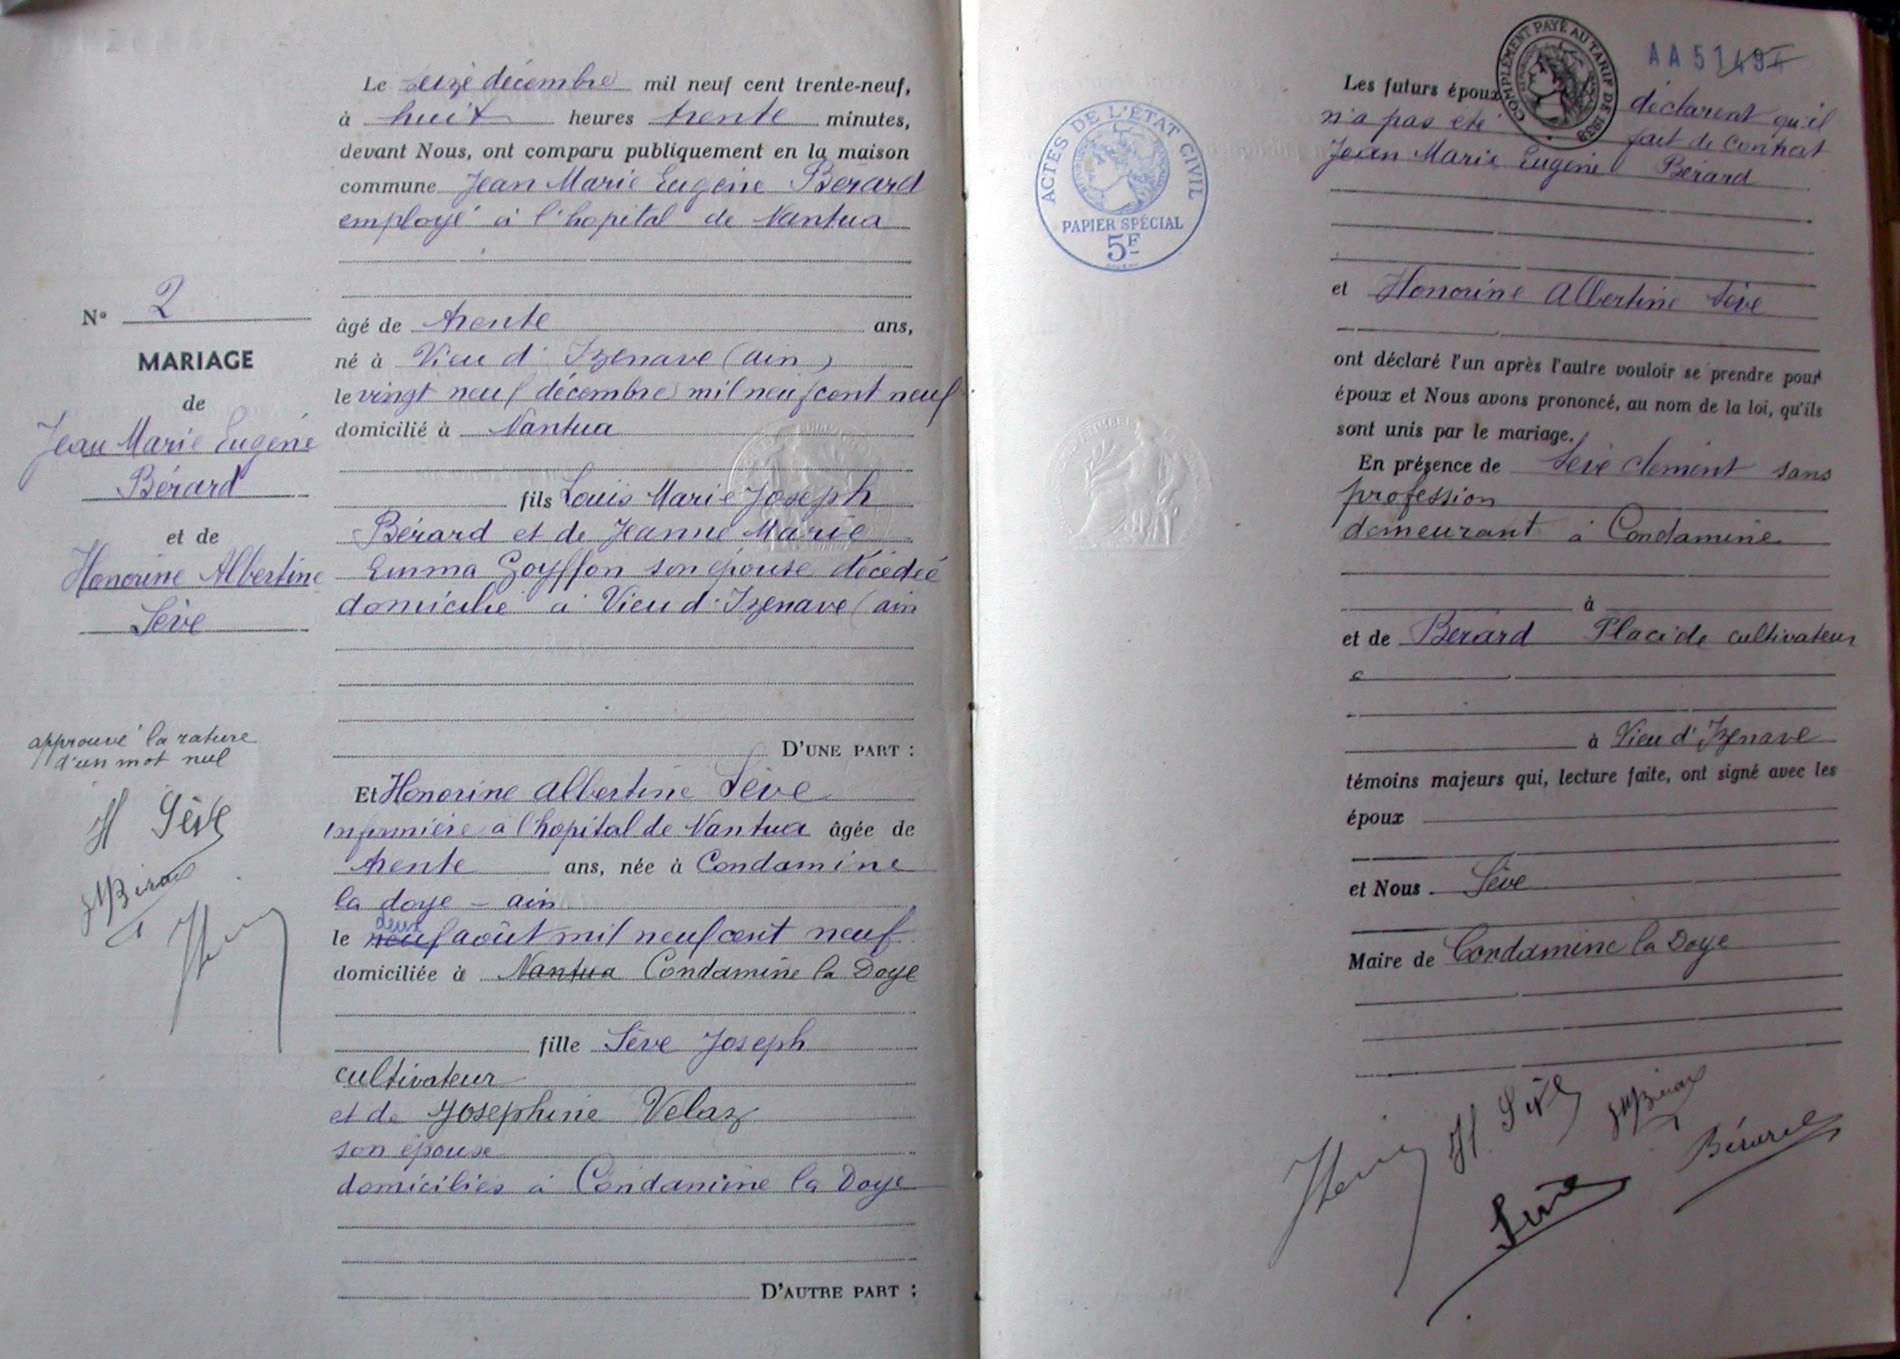 Le seize décembre mil neuf cent trente-neuf,
à huit heures trente minutes,
devant Nous, ont comparu publiquement en la maison
commune Jean Marie Eugène Bérard
employé à l'hopital de Nantua
N° 2
MARIAGE
de
Jean Marie Eugéne
Bérard
et de
Honorine Albertine
Sève
approuvé la rature
d'un mot nul
H Sève
âgé de trente ans,
né à Vieu d'Izenave (ain)
le vingt neuf décembre mil neuf cent neuf
domicilié à Nantua
fils Louis Marie Joseph
Bérard et de Jeanne Marie
Emma Goyffon son épouse décédée
domicilié à Vieu d'Izenave (ain
D'UNE PART :
Et Honorine Albertine Sève
infirmière à l'hopital de Nantua âgée de
trente ans, née à Condamine
la doye - ain
deux
le neuf août mil neuf cent neuf
domiciliée à Nantua Condamine la Doye
fille Sève Joseph
cultivateur
et de Josephine Velaz
son épouse
domiciliés à Condamine la Doye
D'AUTRE PART :
ACTES DE L'ÉTAT CIVIL
PAPIER SPÉCIAL
5F
COMPLÉMENT PAYÉ AU TARIF DE 1939
AA 51494
Les futurs époux déclarent qu'il
n'a pas été fait de contrat
Jean Marie Eugène Bérard
et Honorine Albertine Sève
ont déclaré l'un après l'autre vouloir se prendre pour
époux et Nous avons prononcé, au nom de la loi, qu'ils
sont unis par le mariage.
En présence de Sève clément sans
profession
demeurant à Condamine
à
et de Bérard Placide cultivateur
à Vieu d'Izenave
témoins majeurs qui, lecture faite, ont signé avec les
époux
et Nous Sève
Maire de Condamine la Doye
H. Sève
Sève
Bérard